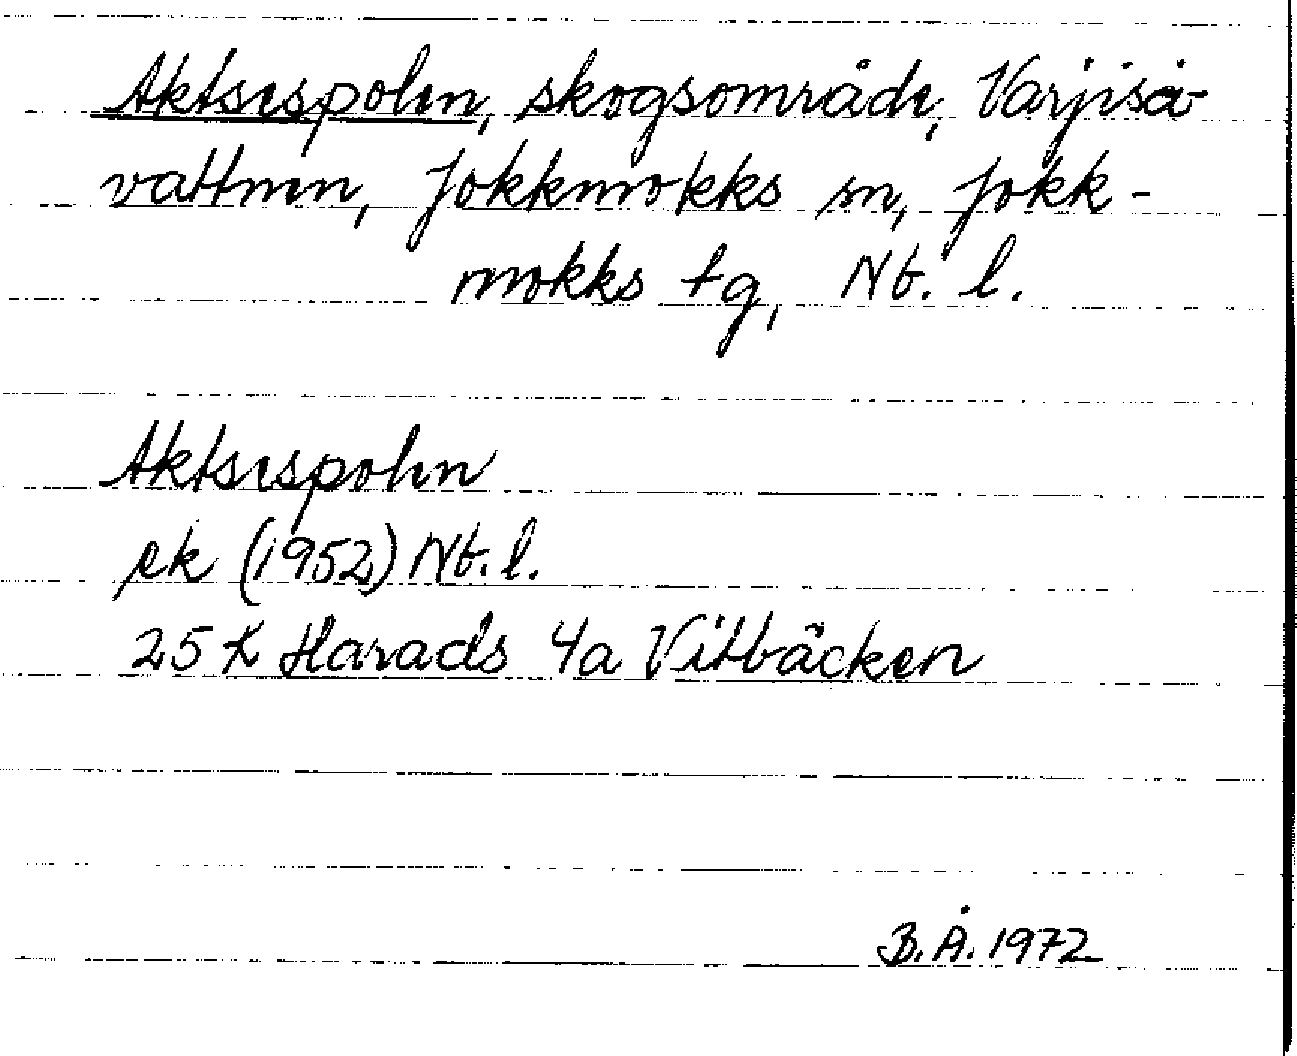 Aktsespolen, skogsområde, Varjiså-
vattnen, Jokkmokks sn, Jokk-
mokks tg, Nb. l.
Aktsespolen
ek (1952) Nb. l.
25 K Harads 4a Vitbäcken
B. Å. 1972